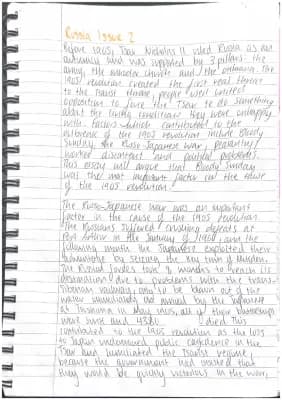 Russia Issue 2
Before 1905, Tsar Nicholas II ruled Russia as an
autocracy and was supported by 3 pillars: the
army, the orthodox church and the
1905 revolution created the first real threat
to the Tsarist throne, people used united
opposition to force the Tsar to do something
about the living conditions they were unhappy
with. Factors which contributed to the
outbreak of the 1905 revolution include Bloody
Sunday, the Russo-Japanese war, peasantry/
worker discontent and political
This essay will argue that Bloody Sunday
was the most important factor in the cause
of the 1905 revolution.
The Russo-Japanese war was an important
factor in the cause of the 1905 revolution.
The Russians suffered crushing defeats at
Port Arthur in the January of 1904, and the
following month the Japanese exploited their
advantage by seizing the key town of Mukden.
The Russian forces took 8 months to reach its
destination due to problems with the trans-
Siberian railway, only to be blown out of the
water immediately on arrival by the Japanese
at Tsushima in May 1905, all of their battleships
were sunk and 4380 died. This
contributed to the 1905 revolution as the loss
to Japan undermined public confidence in the
Tsar and humiliated the Tsarist regime,
because the government had insisted that
they would be quickly victorious in the war,